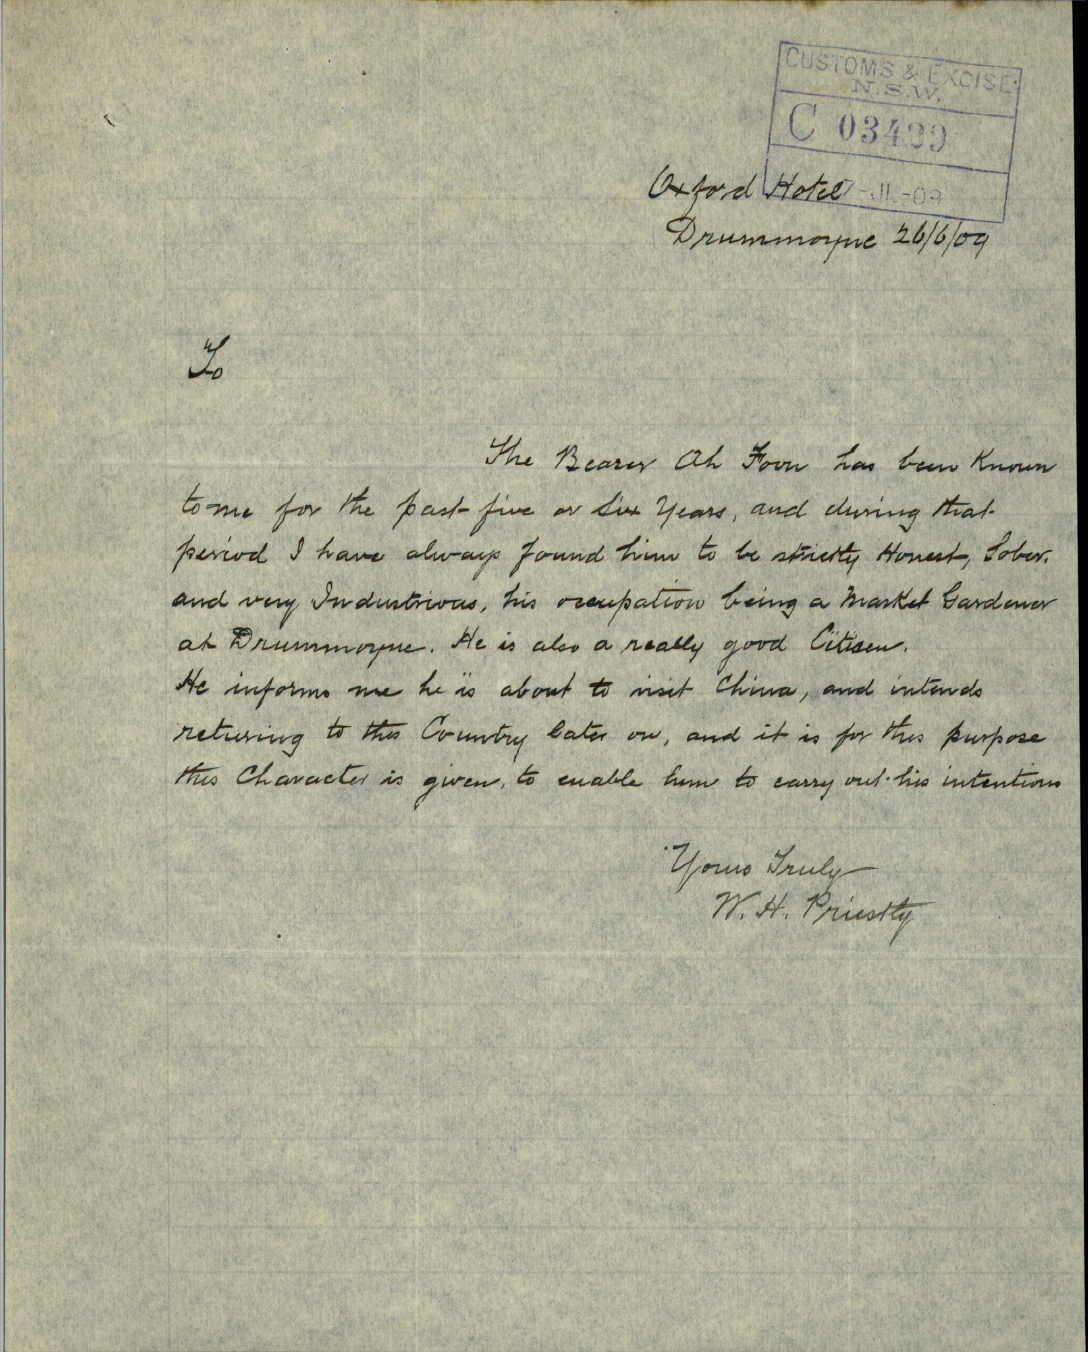 CUSTOMS & EXCISE.
N.S.W.
C 03499
7-JL-09
Oxford Hotel
Drummoyne 26/6/09
To
The Bearer Ah Foon has been Known
to me for the past five or Six Years, and during that
period I have always found him to be strictly Honest, Sober.
and very Industrious, his occupation being a Market Gardener
at Drummoyne. He is also a really good Citisen.
He informs me he is about to visit China, and intends
returing to this Country later on, and it is for this purpose
this Character is given, to enable him to carry out his intentions
Yours Truly
W. H. Priestly